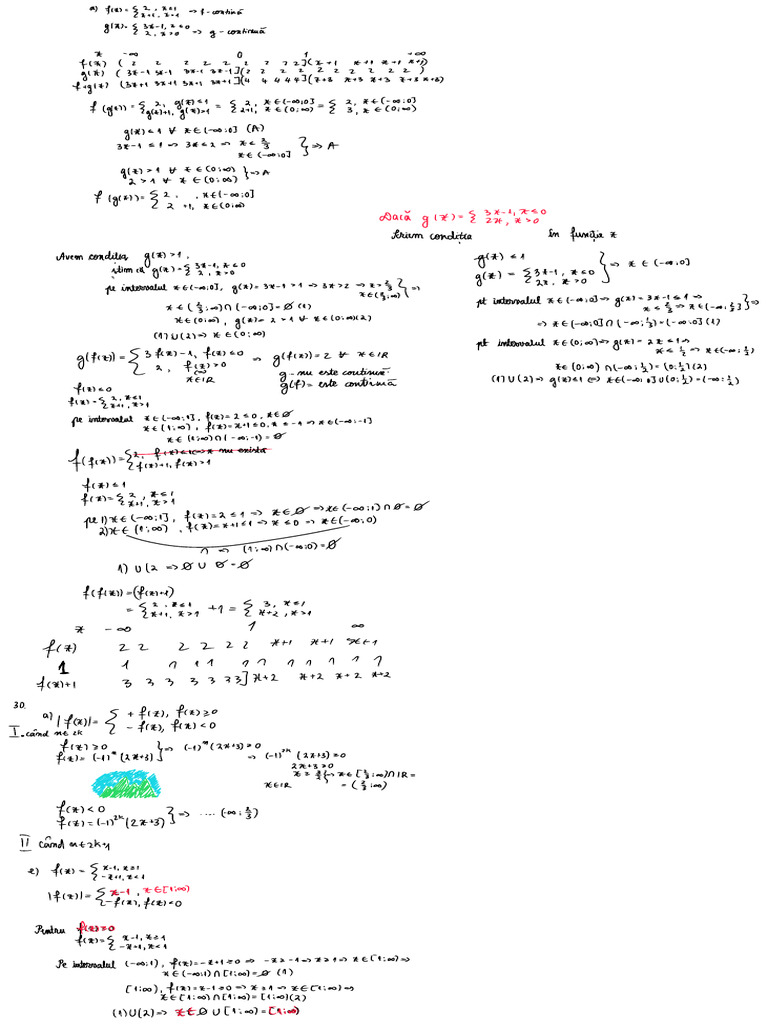 a) f(x)= { 2, x≤1
x+1, x>1 → f-continuă
g(x)= { 3x-1, x≤0
2, x>0 → g-continuă
x -∞ 0 1 +∞
f(x) ( 2 2 2 2 2 2 2 2 2](x+1 x+1 x+1 x+1)
g(x) (3x-1 3x-1 3x-1 3x-1](2 2 2 2 2 2 2 2 2 2 )
f+g(x) (3x+1 3x+1 3x+1 3x+1](4 4 4 4 4](x+3 x+3 x+3 x+3 x+3)
f(g(x))= { 2, g(x)≤1
g(x)+1, g(x)>1 = { 2, x∈(-∞;0]
2+1, x∈(0;∞) = { 2, x∈(-∞;0]
3, x∈(0;∞)
g(x)≤1 ∀ x∈(-∞;0] (A)
3x-1≤1 ⇔ 3x≤2 ⇔ x≤2/3
x∈(-∞;0] } ⇒ A
g(x)>1 ∀ x∈(0;∞)
2>1 ∀ x∈(0;∞) } ⇒ A
f(g(x))= { 2, x∈(-∞;0]
2+1, x∈(0;∞)
Dacă g(x)= { 3x-1, x≤0
2x, x>0
Scriem condiția în funcție x
g(x)≤1
g(x)= { 3x-1, x≤0
2x, x>0 } ⇒ x∈(-∞;0]
pt intervalul x∈(-∞;0] ⇒ g(x)=3x-1≤1 ⇒
⇒ x≤2/3 ⇒ x∈(-∞;2/3] } ⇒
⇒ x∈(-∞;0]∩(-∞;1/3)=(-∞;0] (1)
pt intervalul x∈(0;∞) ⇒ g(x)=2x≤1 ⇔
x≤1/2 ⇒ x∈(-∞;1/2)
x∈(0;∞)∩(-∞;1/2)=(0;1/2) (2)
(1)∪(2) ⇒ g(x)≤1 ⇔ x∈(-∞;0]∪(0;1/2)=(-∞;1/2)
Avem condiția g(x)>1.
știm că g(x)= { 3x-1, x≤0
2, x>0
pe intervalul x∈(-∞;0], g(x)=3x-1>1 ⇒ 3x>2 ⇒ x>2/3
x∈(2/3;∞) } ⇒
x∈(2/3;∞)∩(-∞;0]=∅ (1)
x∈(0;∞), g(x)=2>1 ∀ x∈(0;∞) (2)
(1)∪(2) ⇒ x∈(0;∞)
g(f(x))= { 3f(x)-1, f(x)≤0
2, f(x)>0
x∈ℝ ⇒ g(f(x))=2 ∀ x∈ℝ
g-nu este continuă
g(f)= este continuă
f(x)≤0
f(x)= { 2, x≤1
x+1, x>1
pe intervalul x∈(-∞;1], f(x)=2≤0, x∈∅
x∈(1;∞), f(x)=x+1≤0, x≤-1 ⇒ x∈(-∞;-1]
x∈(1;∞)∩(-∞;-1)=∅
f(f(x))= { 2, f(x)≤1 ⇔ x nu există
f(x)+1, f(x)>1
f(x)≤1
f(x)= { 2, x≤1
x+1, x>1
pe 1) x∈(-∞;1], f(x)=2≤1 ⇒ x∈∅ ⇒ x∈(-∞;1)∩∅=∅
2) x∈(1;∞), f(x)=x+1≤1 ⇒ x≤0 ⇒ x∈(-∞;0)
∩ ⇒ (1;∞)∩(-∞;0)=∅
1)∪(2 ⇒ ∅∪∅=∅
f(f(x))=(f(x)+1)
= { 2, x≤1
x+1, x>1 +1 = { 3, x≤1
x+2, x>1
x -∞ 1 ∞
f(x) 2 2 2 2 2 2 x+1 x+1 x+1
1 1 1 1 1 1 1 1 1 1 1 1
f(x)+1 3 3 3 3 3 3 3] x+2 x+2 x+2 x+2
30.
a) |f(x)|= { +f(x), f(x)≥0
-f(x), f(x)<0
I. când n∈2k
f(x)≥0
f(x)=(-1)ⁿ(2x+3) } ⇒ (-1)ⁿ(2x+3)≥0
⇒ (-1)²ᵏ(2x+3)≥0
2x+3≥0
x∈ℝ
f(x)<0
f(x)=(-1)²ᵏ(2x+3) } ⇒ .... (∞;2/3)
II când n∈2k+1
e) f(x)= { x-1, x≥1
-x+1, x<1
|f(x)|= { x-1, x∈[1;∞)
-f(x), f(x)<0
Pentru f(x)≥0
f(x)= { x-1, x≥1
-x+1, x<1
Pe intervalul (-∞;1), f(x)=-x+1≥0 ⇒ -x≥-1 ⇒ x≥1 ⇒ x∈[1;∞) ⇒
x∈(-∞;1)∩[1;∞)=∅ (1)
[1;∞), f(x)=x-1≥0 ⇒ x≥1 ⇒ x∈[1;∞) ⇒
x∈[1;∞)∩[1;∞)=[1;∞) (2)
(1)∪(2) ⇒ x∈∅∪[1;∞)=[1;∞)